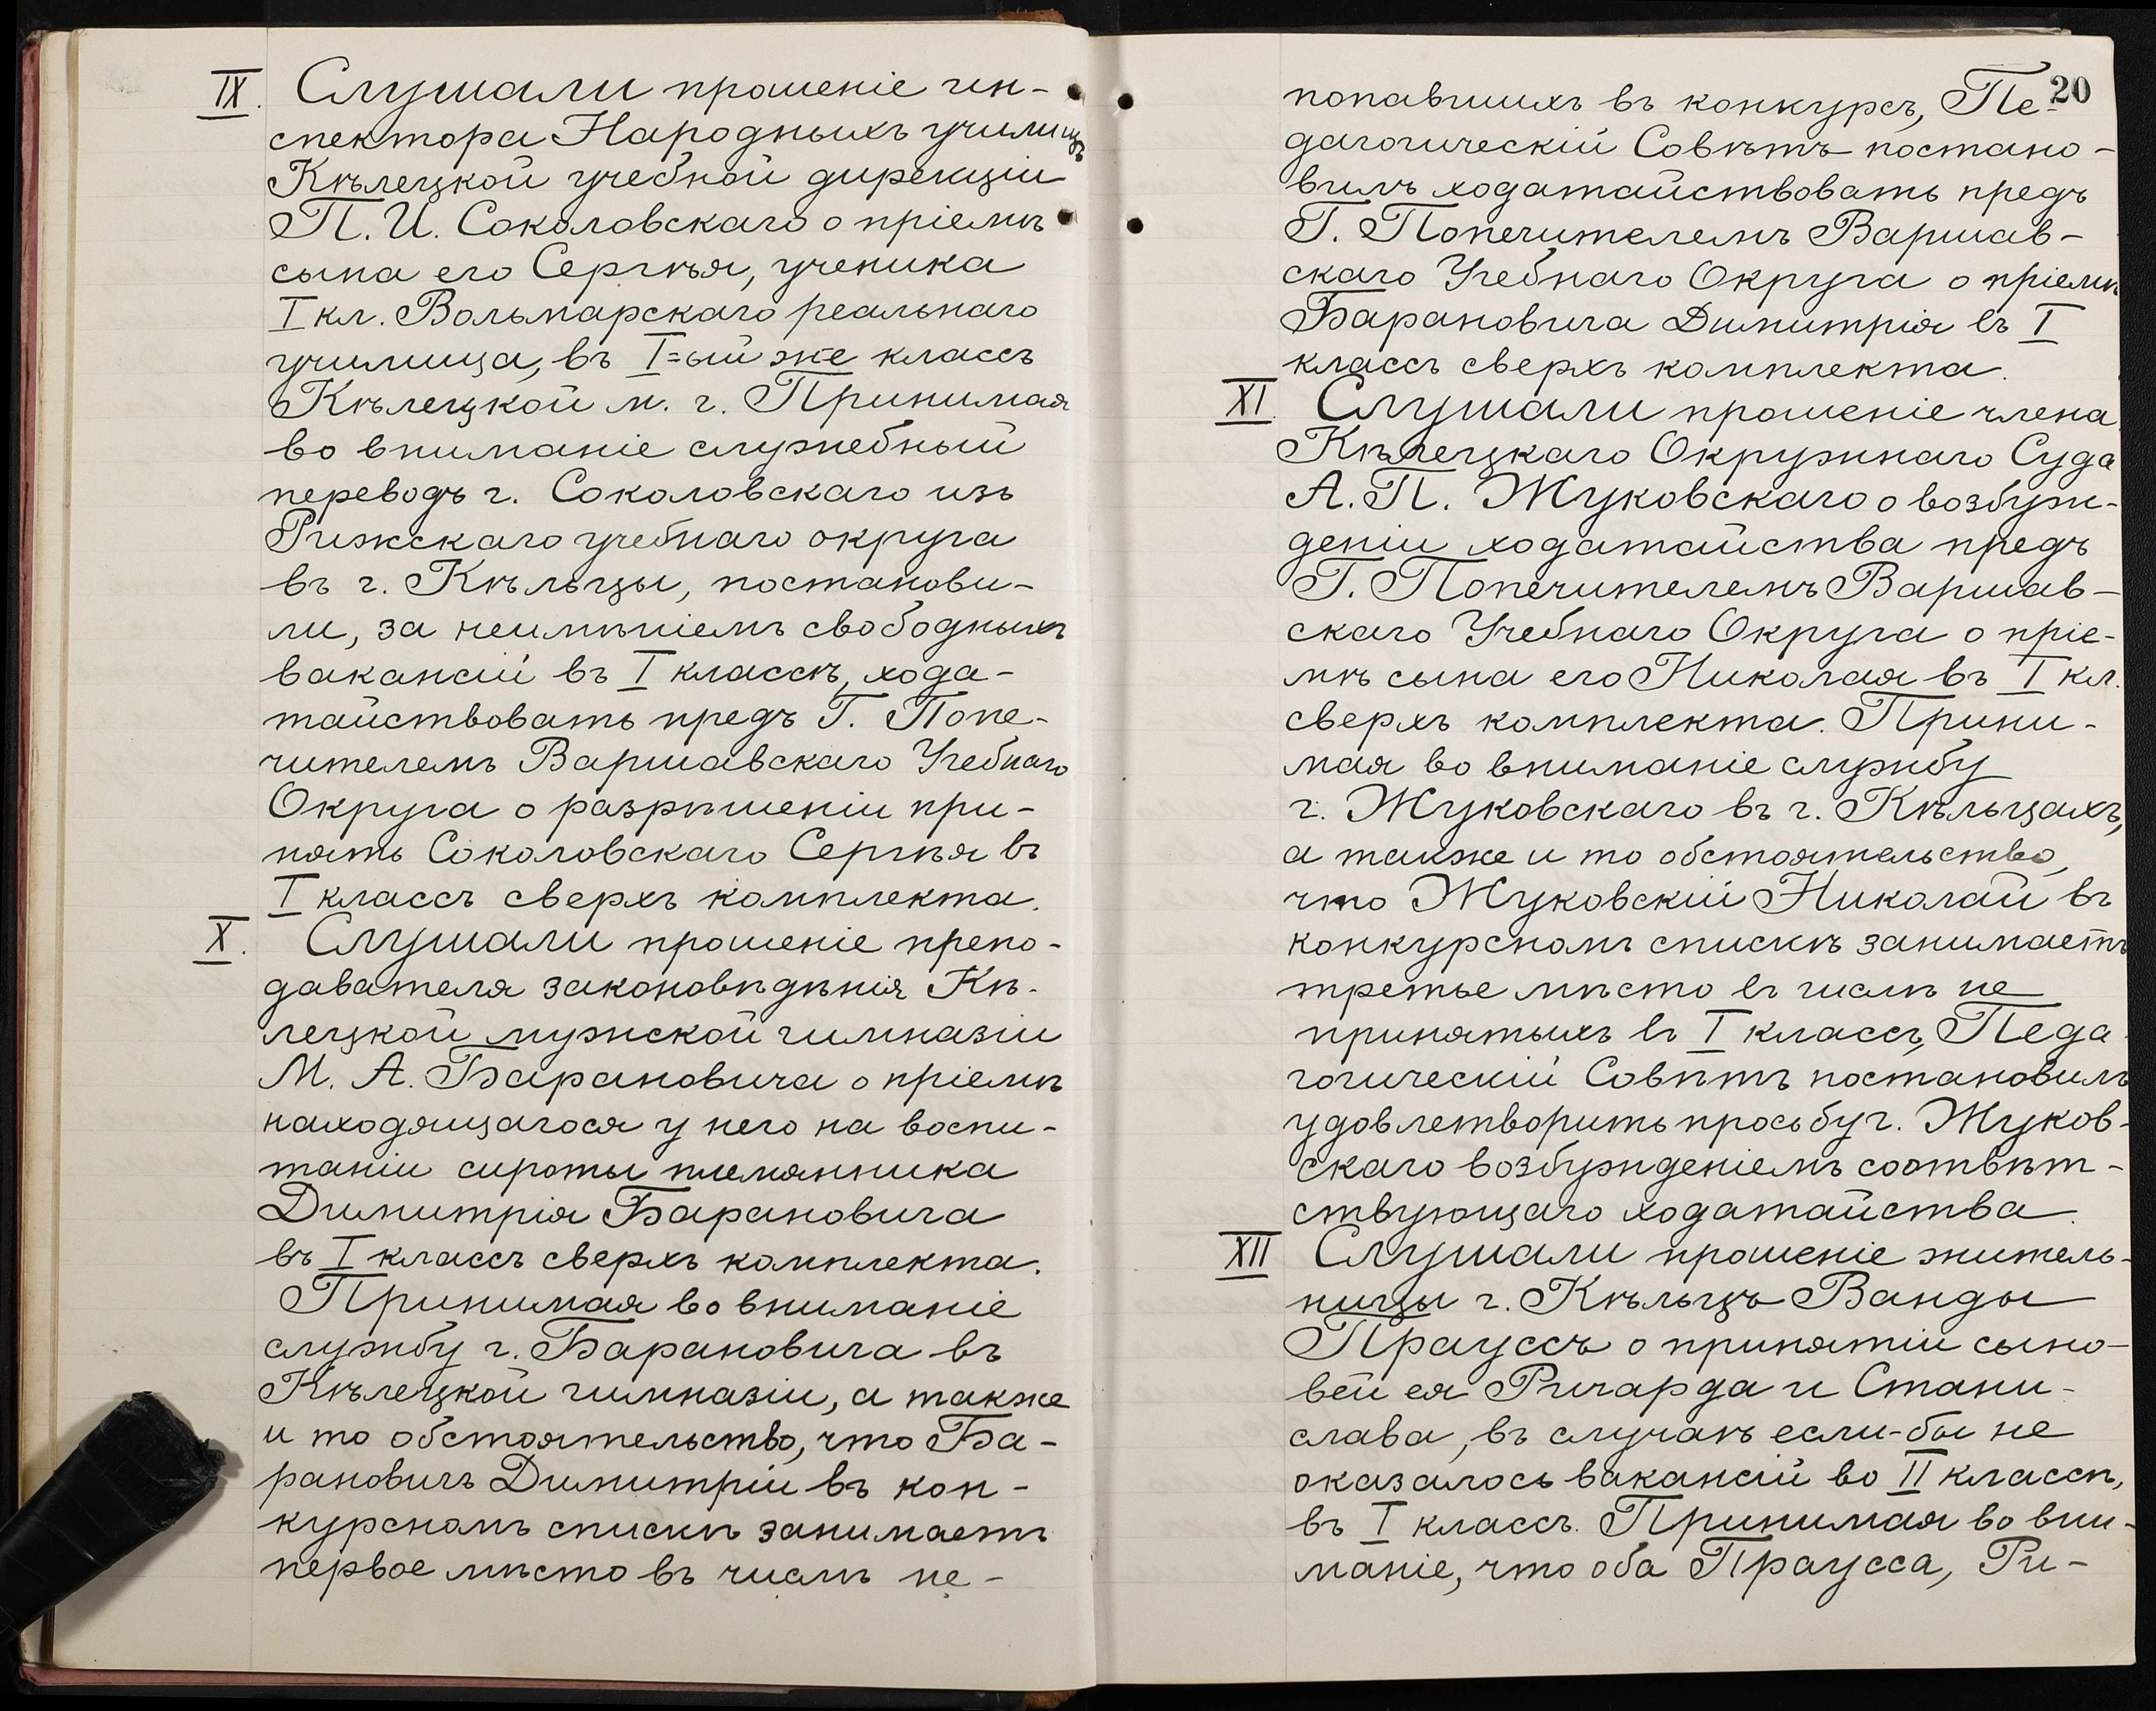 IX. Слушали прошеніе ин-
спектора Народныхъ училищъ
Кѣлецкой учебной дирекціи
П. И. Соколовскаго о пріемѣ
сына его Сергѣя, ученика
I кл. Вольмарскаго реальнаго
училища, въ I=ый же классъ
Кѣлецкой м. г. Принимая
во вниманіе служебный
переводъ г. Соколовскаго изъ
Рижскаго учебнаго округа
въ г. Кѣльцы, постанови-
ли, за неимѣніемъ свободныхъ
вакансій въ I классѣ, хода-
тайствовать предъ Г. Попе-
чителемъ Варшавскаго Учебнаго
Округа о разрѣшеніи при-
нять Соколовскаго Сергѣя въ
I классъ сверхъ комплекта.
X. Слушали прошеніе препо-
давателя законовѣдѣнія Кѣ-
лецкой мужской гимназіи
М. А. Барановича о пріемѣ
находящагося у него на воспи-
таніи сироты племянника
Димитрія Барановича
въ I классъ сверхъ комплекта.
Принимая во вниманіе
службу г. Барановича въ
Кѣлецкой гимназіи, а также
и то обстоятельство, что Ба-
рановичъ Димитрій въ кон-
курсномъ спискѣ занимаетъ
первое мѣсто въ числѣ не-
20
попавшихъ въ конкурсъ, Пе-
дагогическій Совѣтъ постано-
вилъ ходатайствовать предъ
Г. Попечителемъ Варшав-
скаго Учебнаго Округа о пріемѣ
Барановича Димитрія въ I
классъ сверхъ комплекта.
XI. Слушали прошеніе члена
Кѣлецкаго Окружнаго Суда
А. П. Жуковскаго о возбуж-
деніи ходатайства предъ
Г. Попечителемъ Варшав-
скаго Учебнаго Округа о пріе-
мѣ сына его Николая въ I кл.
сверхъ комплекта. Прини-
мая во вниманіе службу
г. Жуковскаго въ г. Кѣльцахъ,
а также и то обстоятельство,
что Жуковскій Николай въ
конкурсномъ спискѣ занимаетъ
третье мѣсто въ числѣ не
принятыхъ въ I классъ, Педа
гогическій Совѣтъ постановилъ
удовлетворить просьбу г. Жуков-
скаго возбужденіемъ соотвѣт-
ствующаго ходатайства.
XII Слушали прошеніе житель-
ницы г. Кѣльцъ Ванды
Прауссъ о принятіи сыно-
вей ея Ричарда и Стани-
слава, въ случаѣ если-бы не
оказалось вакансій во II классѣ,
въ I классъ. Принимая во вни-
маніе, что оба Праусса, Ри-